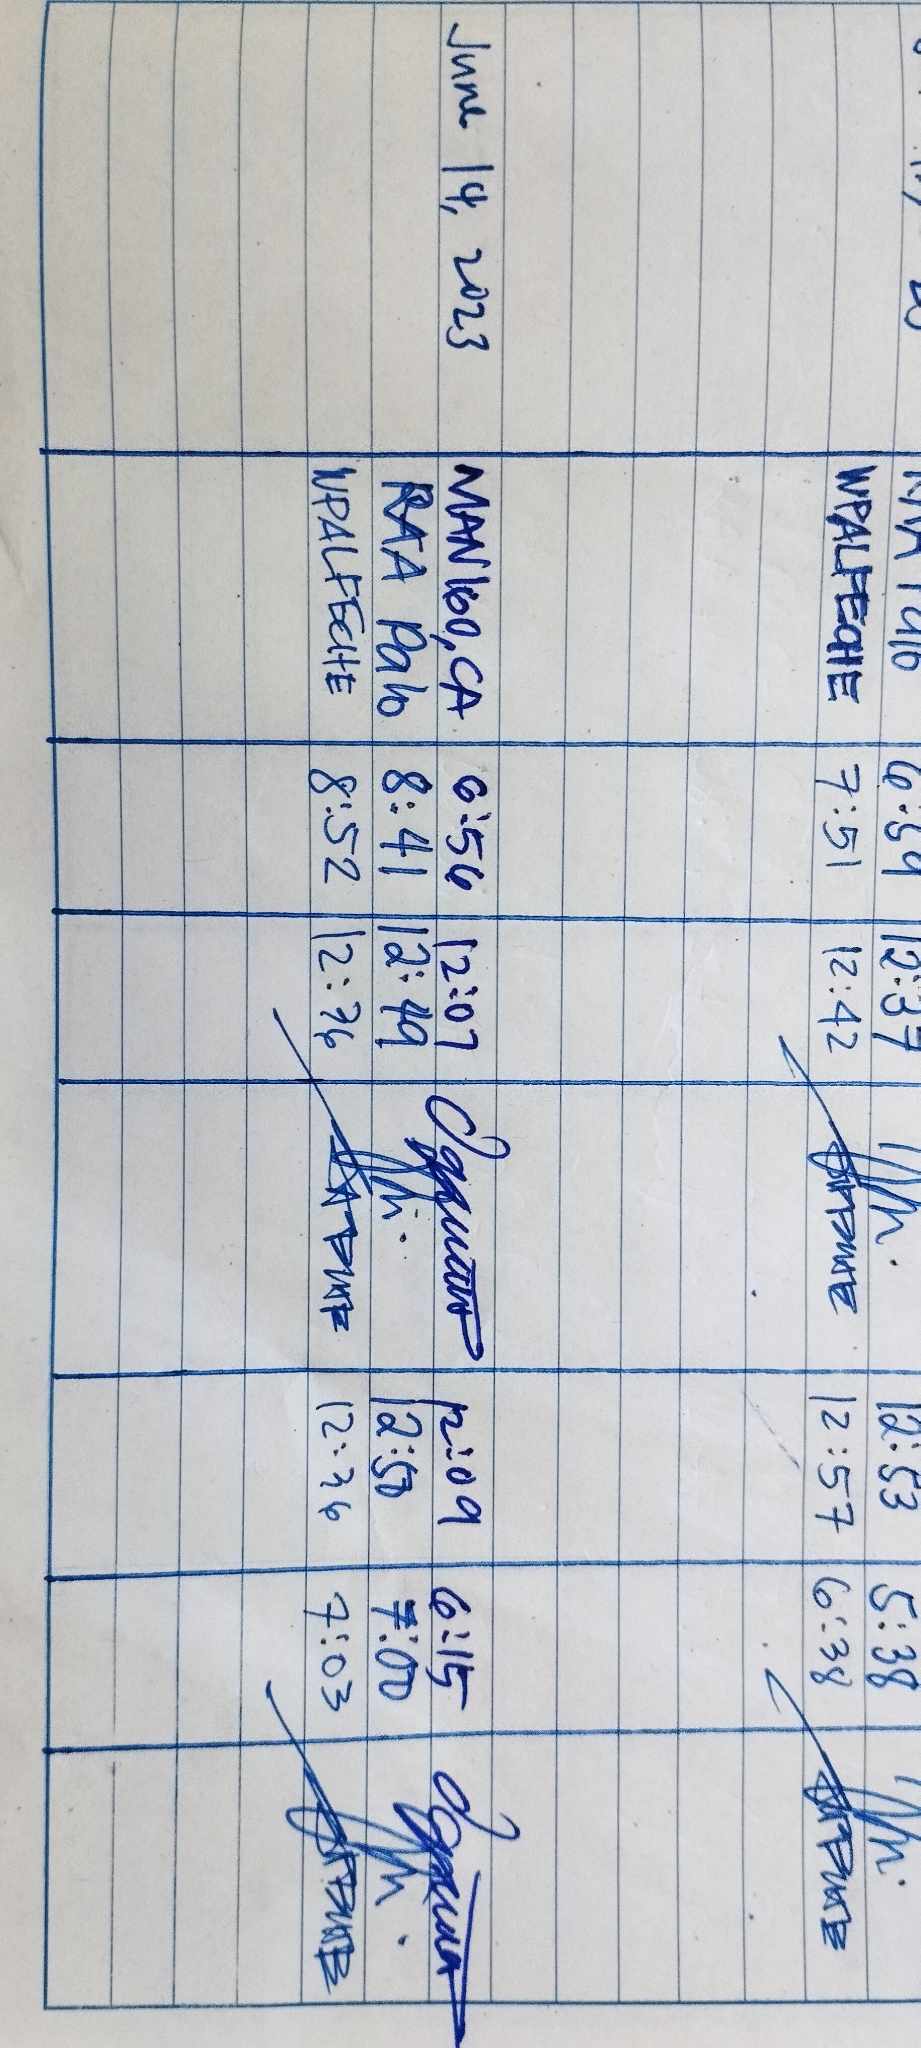 6:59 12:37 12:53 5:38
WPALFECHE 7:51 12:42 12:57 6:38
June 14, 2023 MANIGO, CA 6:56 12:07 12:09 6:15
RAA Palo 8:41 12:49 12:50 7:00
WPALFECHE 8:52 12:36 12:36 7:03